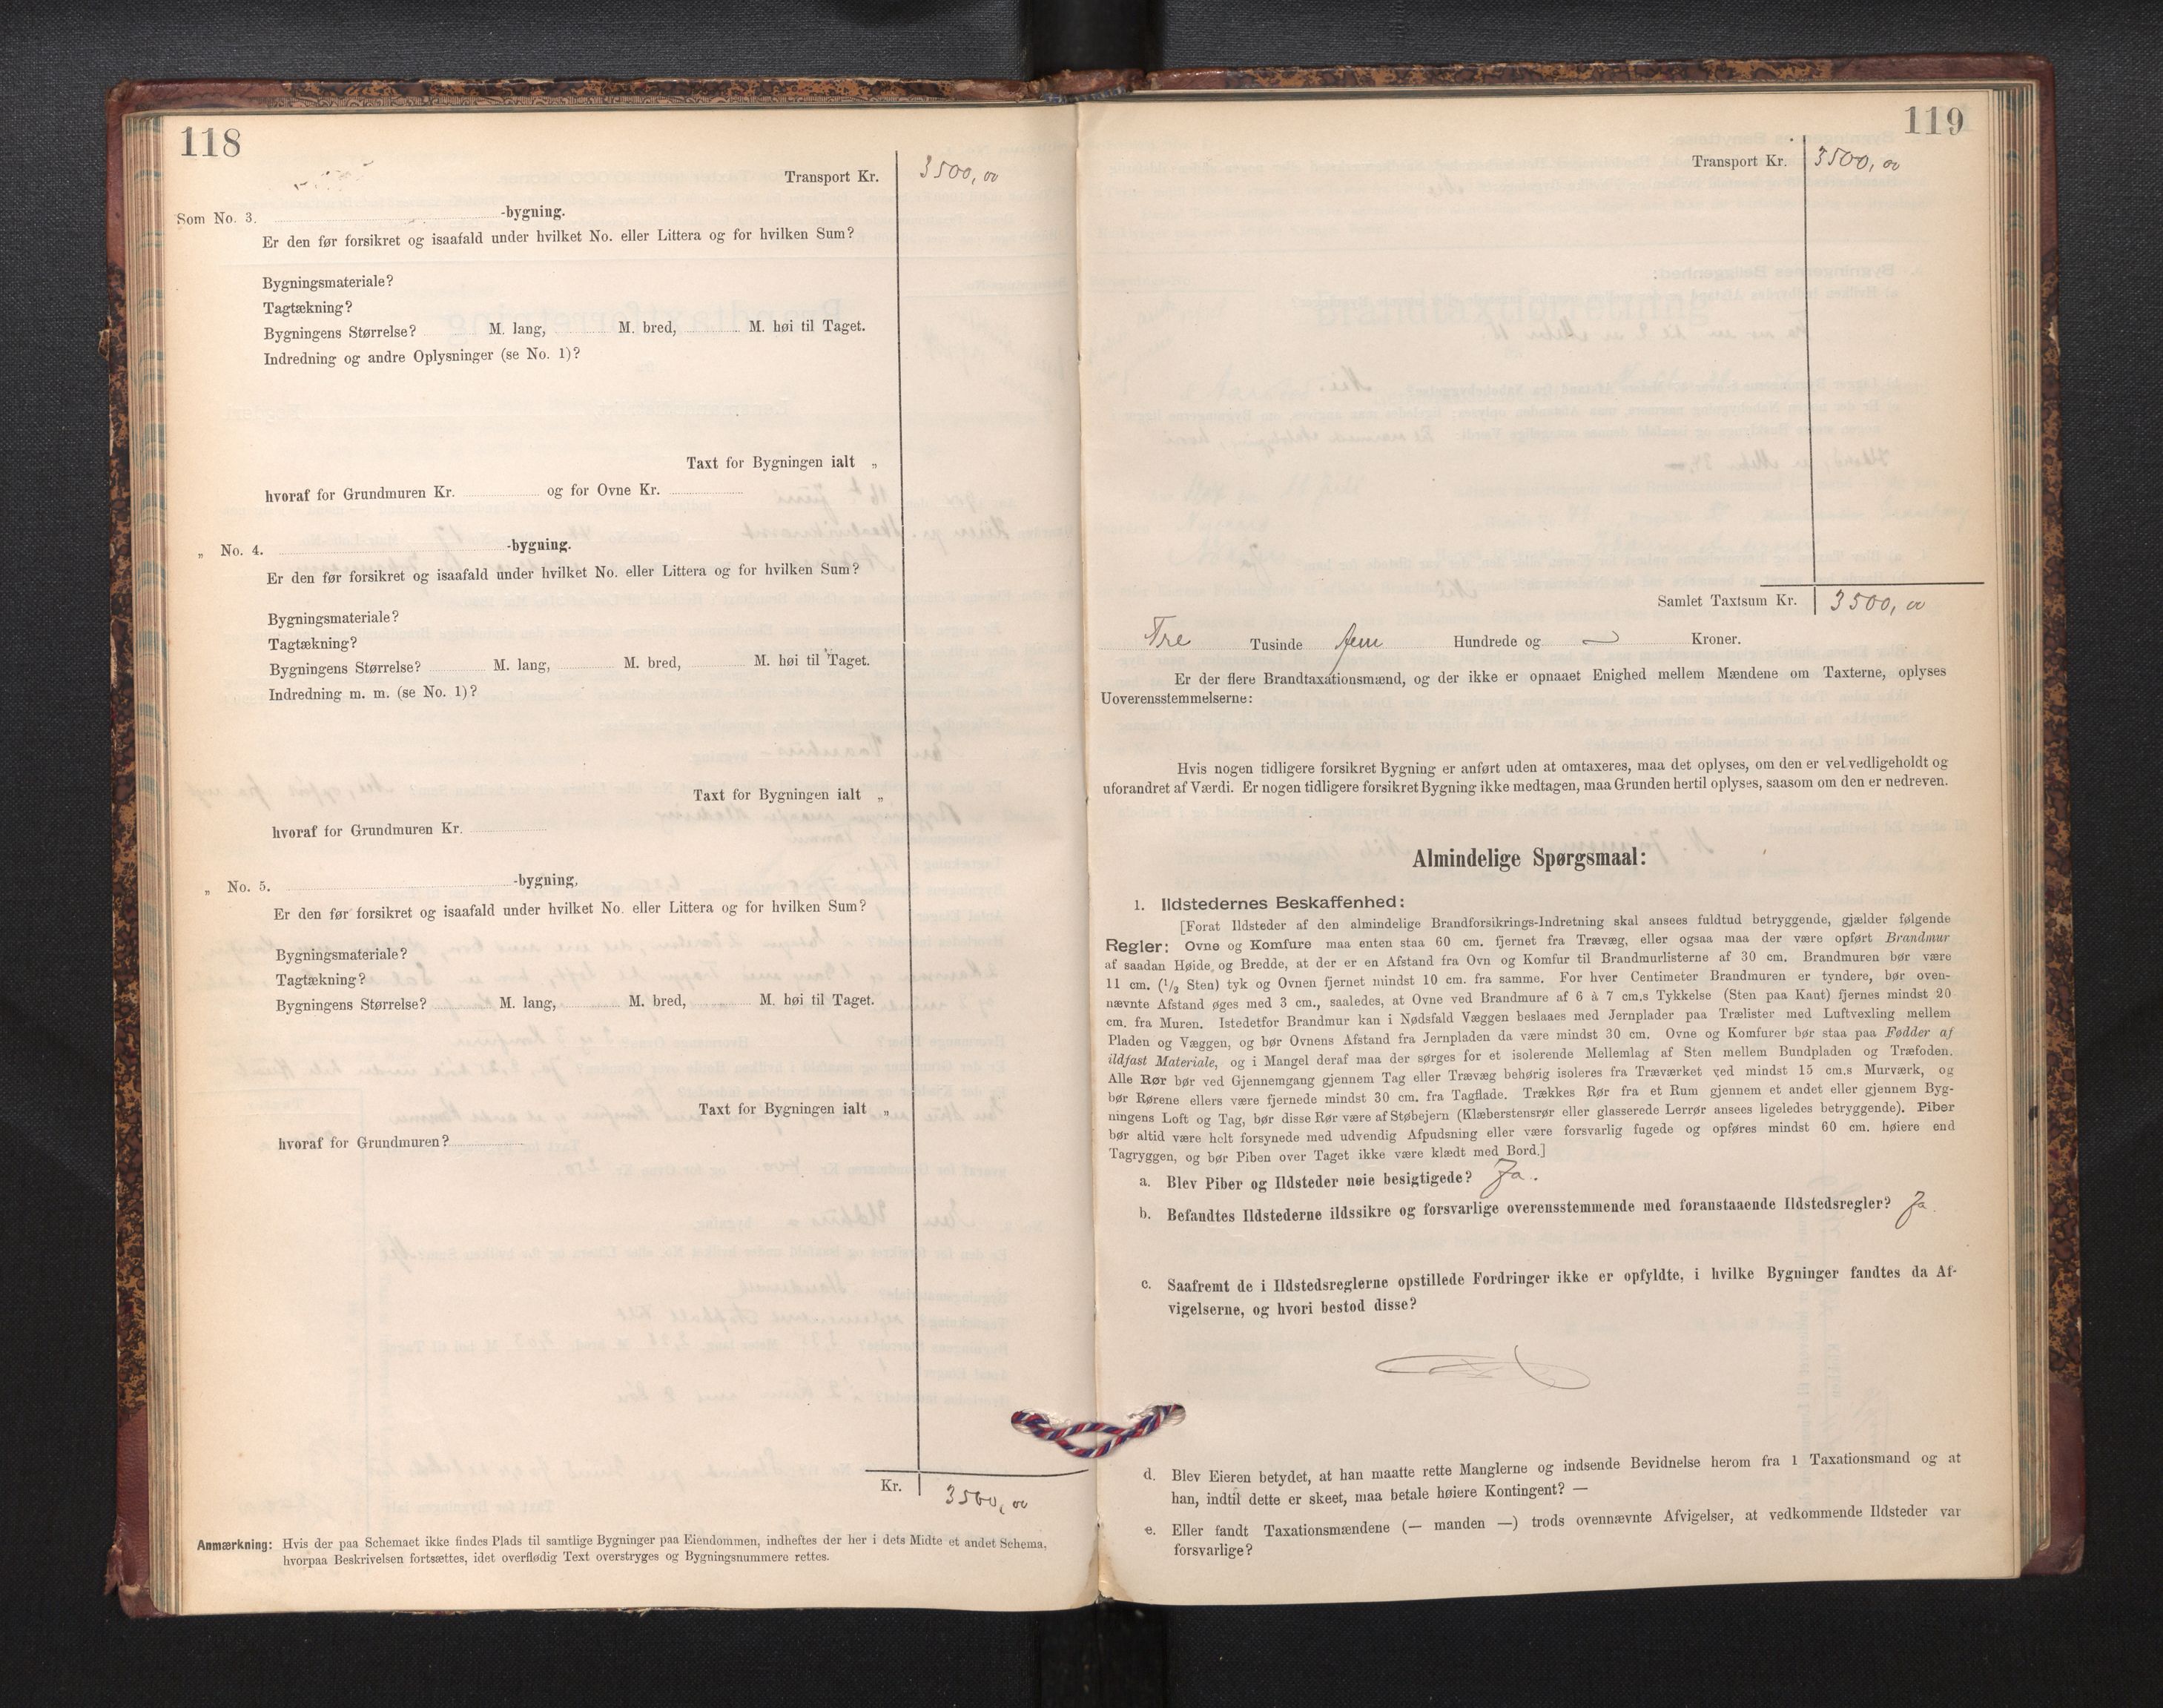 118
Transport Kr. 3500,00
Som No. 3. -bygning.
Er den før forsikret og isaafald under hvilket No. eller Littera og for hvilken Sum?
Bygningsmateriale?
Tagtækning?
Bygningens Størrelse? M. lang, M. bred, M. høi til Taget.
Indredning og andre Oplysninger (se No. 1)?
Taxt for Bygningen ialt „
hvoraf for Grundmuren Kr. og for Ovne Kr.
„ No. 4. -bygning.
Er den før forsikret og isaafald under hvilket No. eller Littera og for hvilken Sum?
Bygningsmateriale?
Tagtækning?
Bygningens Størrelse? M. lang, M. bred, M. høi til Taget.
Indredning m. m. (se No. 1)?
Taxt for Bygningen ialt „
hvoraf for Grundmuren Kr.
„ No. 5. -bygning,
Er den før forsikret og isaafald under hvilket No. eller Littera og for hvilken Sum?
Bygningsmateriale?
Tagtækning?
Bygningens Størrelse? M. lang, M. bred, M. høi til Taget.
Taxt for Bygningen ialt „
hvoraf for Grundmuren?
Kr. 3500,00
Anmærkning: Hvis der paa Schemaet ikke findes Plads til samtlige Bygninger paa Eiendommen, indheftes der her i dets Midte et andet Schema,
hvorpaa Beskrivelsen fortsættes, idet overflødig Text overstryges og Bygningsnummere rettes.
119
Transport Kr. 3500,00
Samlet Taxtsum Kr. 3500,00
Tre Tusinde fem Hundrede og — Kroner.
Er der flere Brandtaxationsmænd, og der ikke er opnaaet Enighed mellem Mændene om Taxterne, oplyses
Uoverensstemmelserne:
Hvis nogen tidligere forsikret Bygning er anført uden at omtaxeres, maa det oplyses, om den er vel vedligeholdt og
uforandret af Værdi. Er nogen tidligere forsikret Bygning ikke medtagen, maa Grunden hertil oplyses, saasom om den er nedreven.
Almindelige Spørgsmaal:
1. Ildstedernes Beskaffenhed:
[Forat Ildsteder af den almindelige Brandforsikrings-Indretning skal ansees fuldtud betryggende, gjælder følgende
Regler: Ovne og Komfure maa enten staa 60 cm. fjernet fra Trævæg, eller ogsaa maa der være opført Brandmur
af saadan Høide og Bredde, at der er en Afstand fra Ovn og Komfur til Brandmurlisterne af 30 cm. Brandmuren bør være
11 cm. (1/2 Sten) tyk og Ovnen fjernet mindst 10 cm. fra samme. For hver Centimeter Brandmuren er tyndere, bør oven-
nævnte Afstand øges med 3 cm., saaledes, at Ovne ved Brandmure af 6 à 7 cm.s Tykkelse (Sten paa Kant) fjernes mindst 20
cm. fra Muren. Istedetfor Brandmur kan i Nødsfald Væggen beslaaes med Jernplader paa Trælister med Luftvexling mellem
Pladen og Væggen, og bør Ovnens Afstand fra Jernpladen da være mindst 30 cm. Ovne og Komfurer bør staa paa Fødder af
ildfast Materiale, og i Mangel deraf maa der sørges for et isolerende Mellemlag af Sten mellem Bundpladen og Træfoden.
Alle Rør bør ved Gjennemgang gjennem Tag eller Trævæg behørig isoleres fra Træværket ved mindst 15 cm.s Murværk, og
bør Rørene ellers være fjernede mindst 30 cm. fra Tagflade. Trækkes Rør fra et Rum gjennem et andet eller gjennem Byg-
ningens Loft og Tag, bør disse Rør være af Støbejern (Klæberstensrør eller glasserede Lerrør ansees ligeledes betryggende). Piber
bør altid være helt forsynede med udvendig Afpudsning eller være forsvarlig fugede og opføres mindst 60 cm. høiere end
Tagryggen, og bør Piben over Taget ikke være klædt med Bord.]
a. Blev Piber og Ildsteder nøie besigtigede? Ja.
b. Befandtes Ildstederne ildssikre og forsvarlige overensstemmende med foranstaaende Ildstedsregler? Ja.
c. Saafremt de i Ildstedsreglerne opstillede Fordringer ikke er opfyldte, i hvilke Bygninger fandtes da Af-
vigelserne, og hvori bestod disse?
d. Blev Eieren betydet, at han maatte rette Manglerne og indsende Bevidnelse herom fra 1 Taxationsmand og at
han, indtil dette er skeet, maa betale høiere Kontingent? —
e. Eller fandt Taxationsmændene (— manden —) trods ovennævnte Afvigelser, at vedkommende Ildsteder var
forsvarlige?